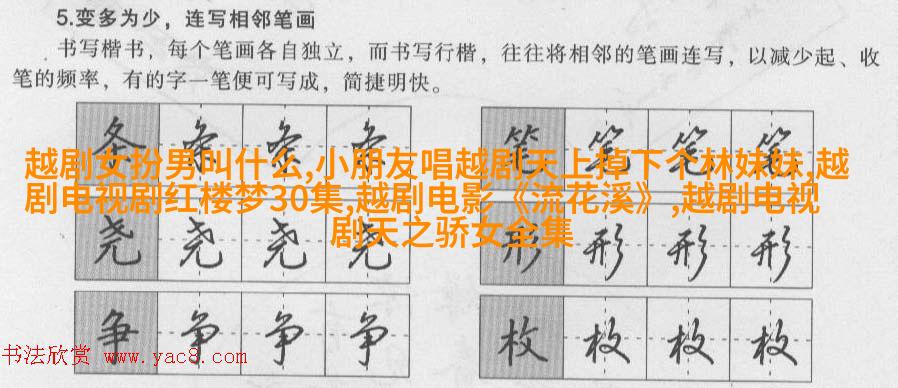 5.变多为少，连写相邻笔画
书写楷书，每个笔画各自独立，而书写行楷，往往将相邻的笔画连写，以减少起、收
笔的频率，有的字一笔便可写成，简捷明快。
条 条 条 条 笔 笔 笔 笔
越剧女扮男叫什么,小朋友唱越剧天上掉下个林妹妹,越
剧电视剧红楼梦30集,越剧电影《流花溪》,越剧电视
剧天之骄女全集
尧 尧 尧 尧 形 形 形 形
争 争 争 争 枚 枚 枚 枚
书法欣赏 www.yac8.com